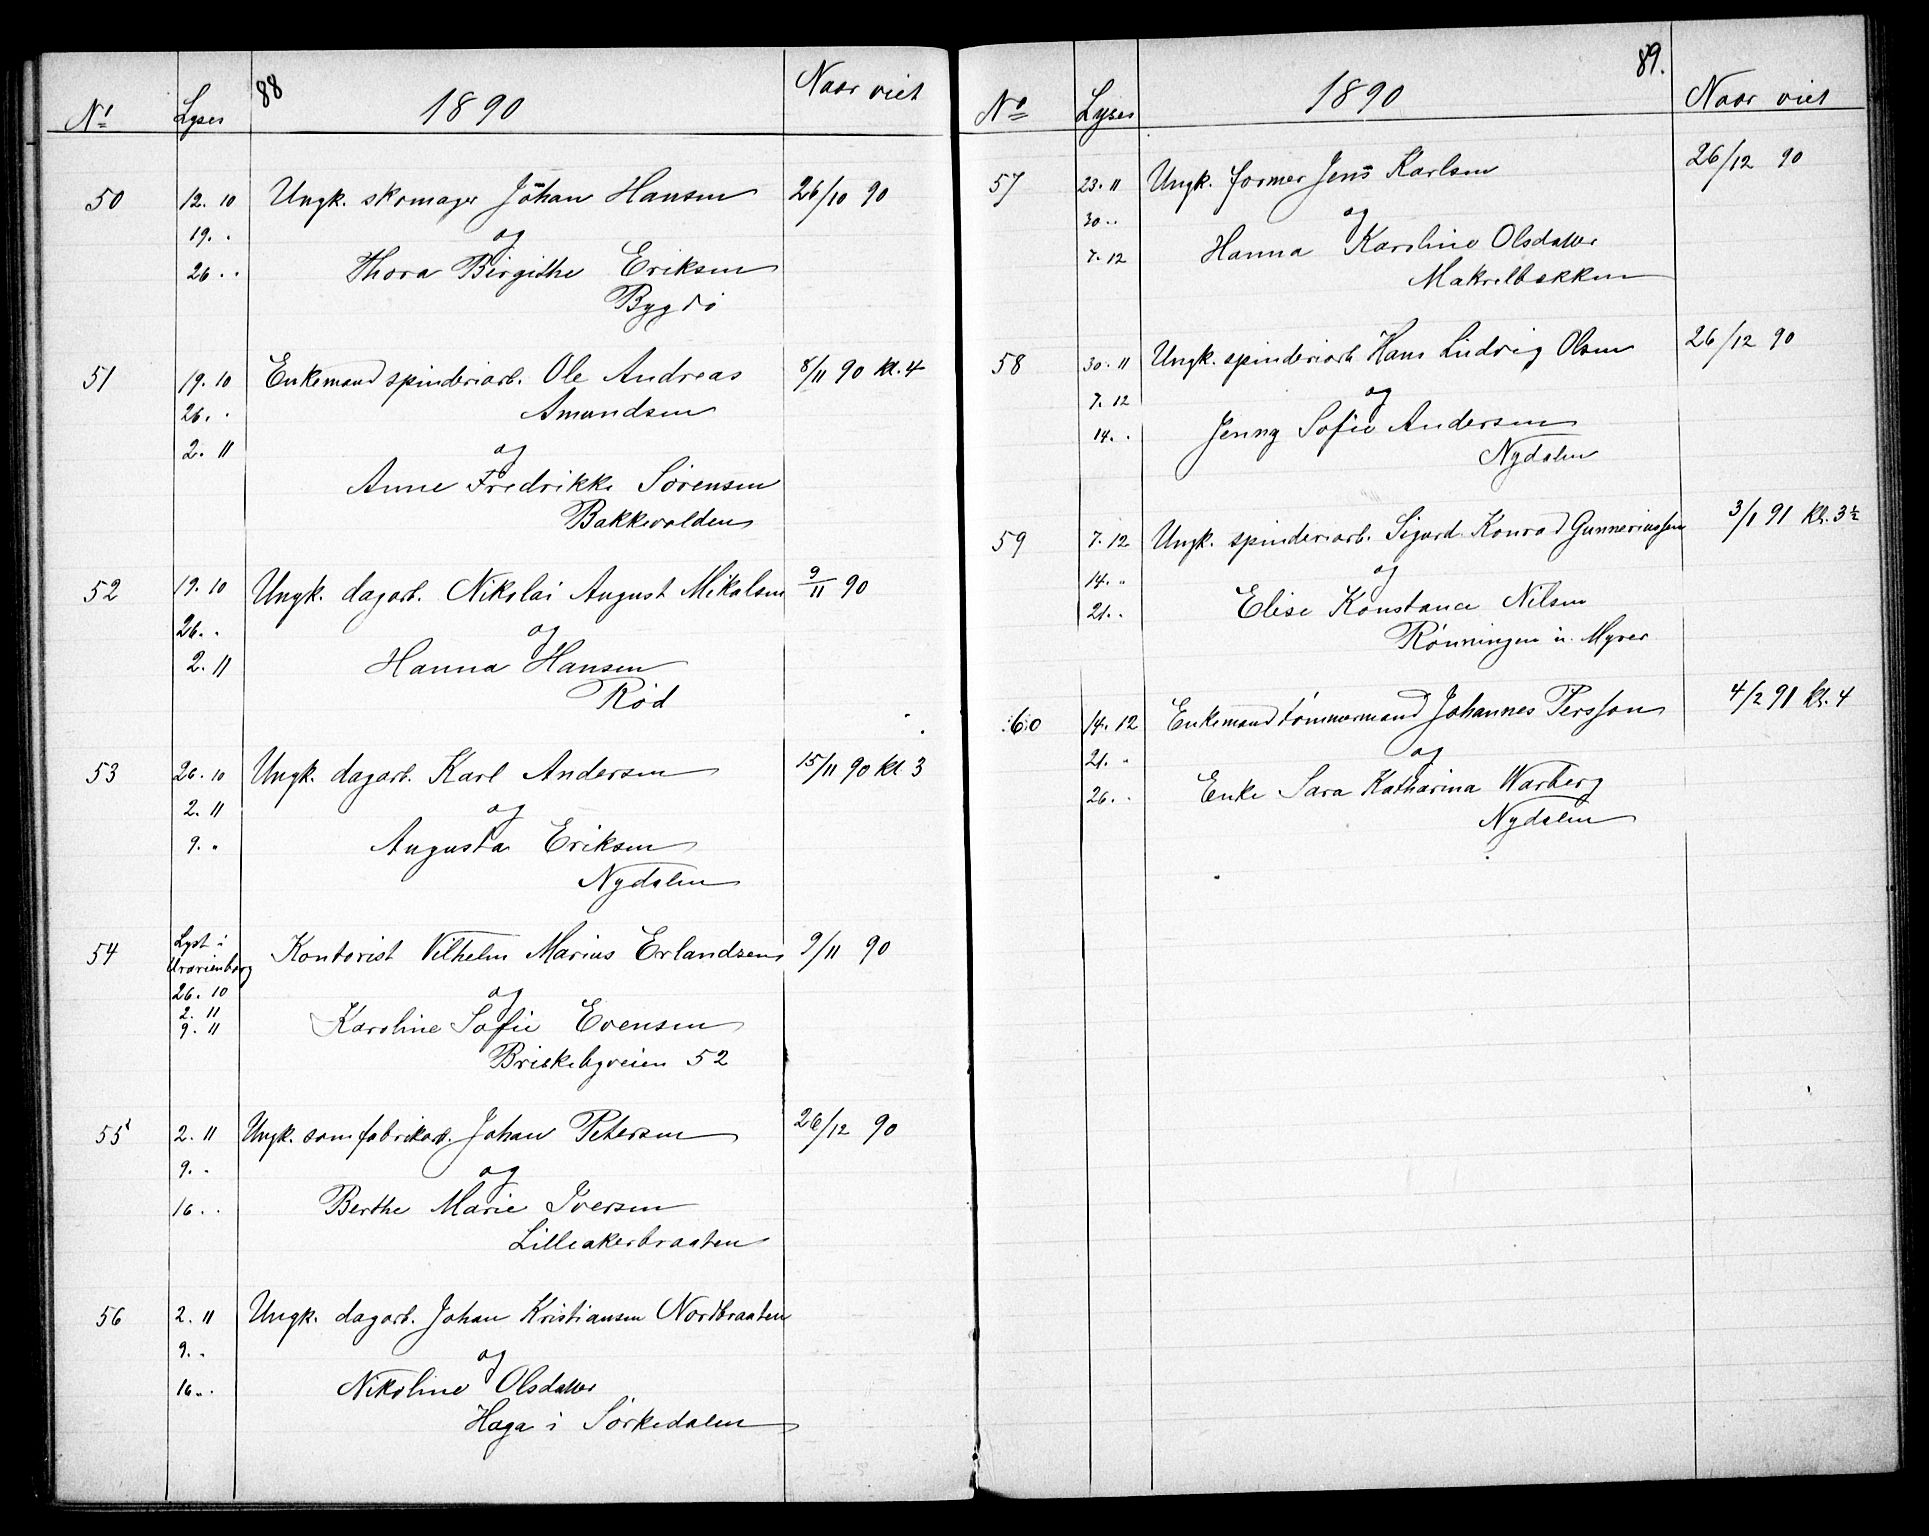 88
No Lyses 1890 Naar viet
50 12. 10 Ungk. skomager Johan Hansen 26/10 90
19. . og
26 . . Thora Birgithe Eriksen
Bygdö
51 19. 10 Enkemand spinderiarb. Ole Andreas 8/11 90 kl. 4
26. . Amundsen
2. 11 og
Anne Fredrikke Sørensen
Bakkevolden
52 19. 10 Ungk. dagarb. Nikolai August Mikalsen 9/11 90
26. . og
2. 11 Hanna Hansen
Röd
53 26. 10 Ungk. dagarb. Karl Andersen 15/11 90 kl 3
2. 11 og
9. " Augusta Eriksen
Nydalen
54 Lyst i Kontorist Vilhelm Marius Erlandsen 9/11 90
Uranienborg
26. 10 og
2. 11
9. 11 Karoline Sofie Evensen
Briskebyveien 52
55 2. 11 Ungk. sømfabrikarb. Johan Petersen 26/12 90
9. . og
16. . Berthe Marie Iversen
Lilleakerbraaten
56 2. 11 Ungk. dagarb. Johan Kristiansen Nordbraaten
9. . og
16. . Nikoline Olsdatter
Haga i Sörkedalen
89.
No Lyses 1890 Naar viet
57 23. 11 Ungk. former Jens Karlsen 26/12 90
30 . . og
7. 12 Hanna Karoline Olsdatter
Makrelbekken
58 30. 11 Ungk. spinderiarb Hans Ludvig Olsen 26/12 90
7. 12 og
14. . Jenny Sofie Andersen
Nydalen
59 7. 12 Ungk. spinderiarb. Sigurd Konrad Gunneriussen 3/1 91 kl. 3½
14. " og
21. . Elise Konstance Nilsen
Rönningen u. Myrer
60 14. 12 Enkemand tömmermand Johannes Persson 4/2 91 kl. 4
21. " og
26. . Enke Sara Katharina Warberg
Nydalen